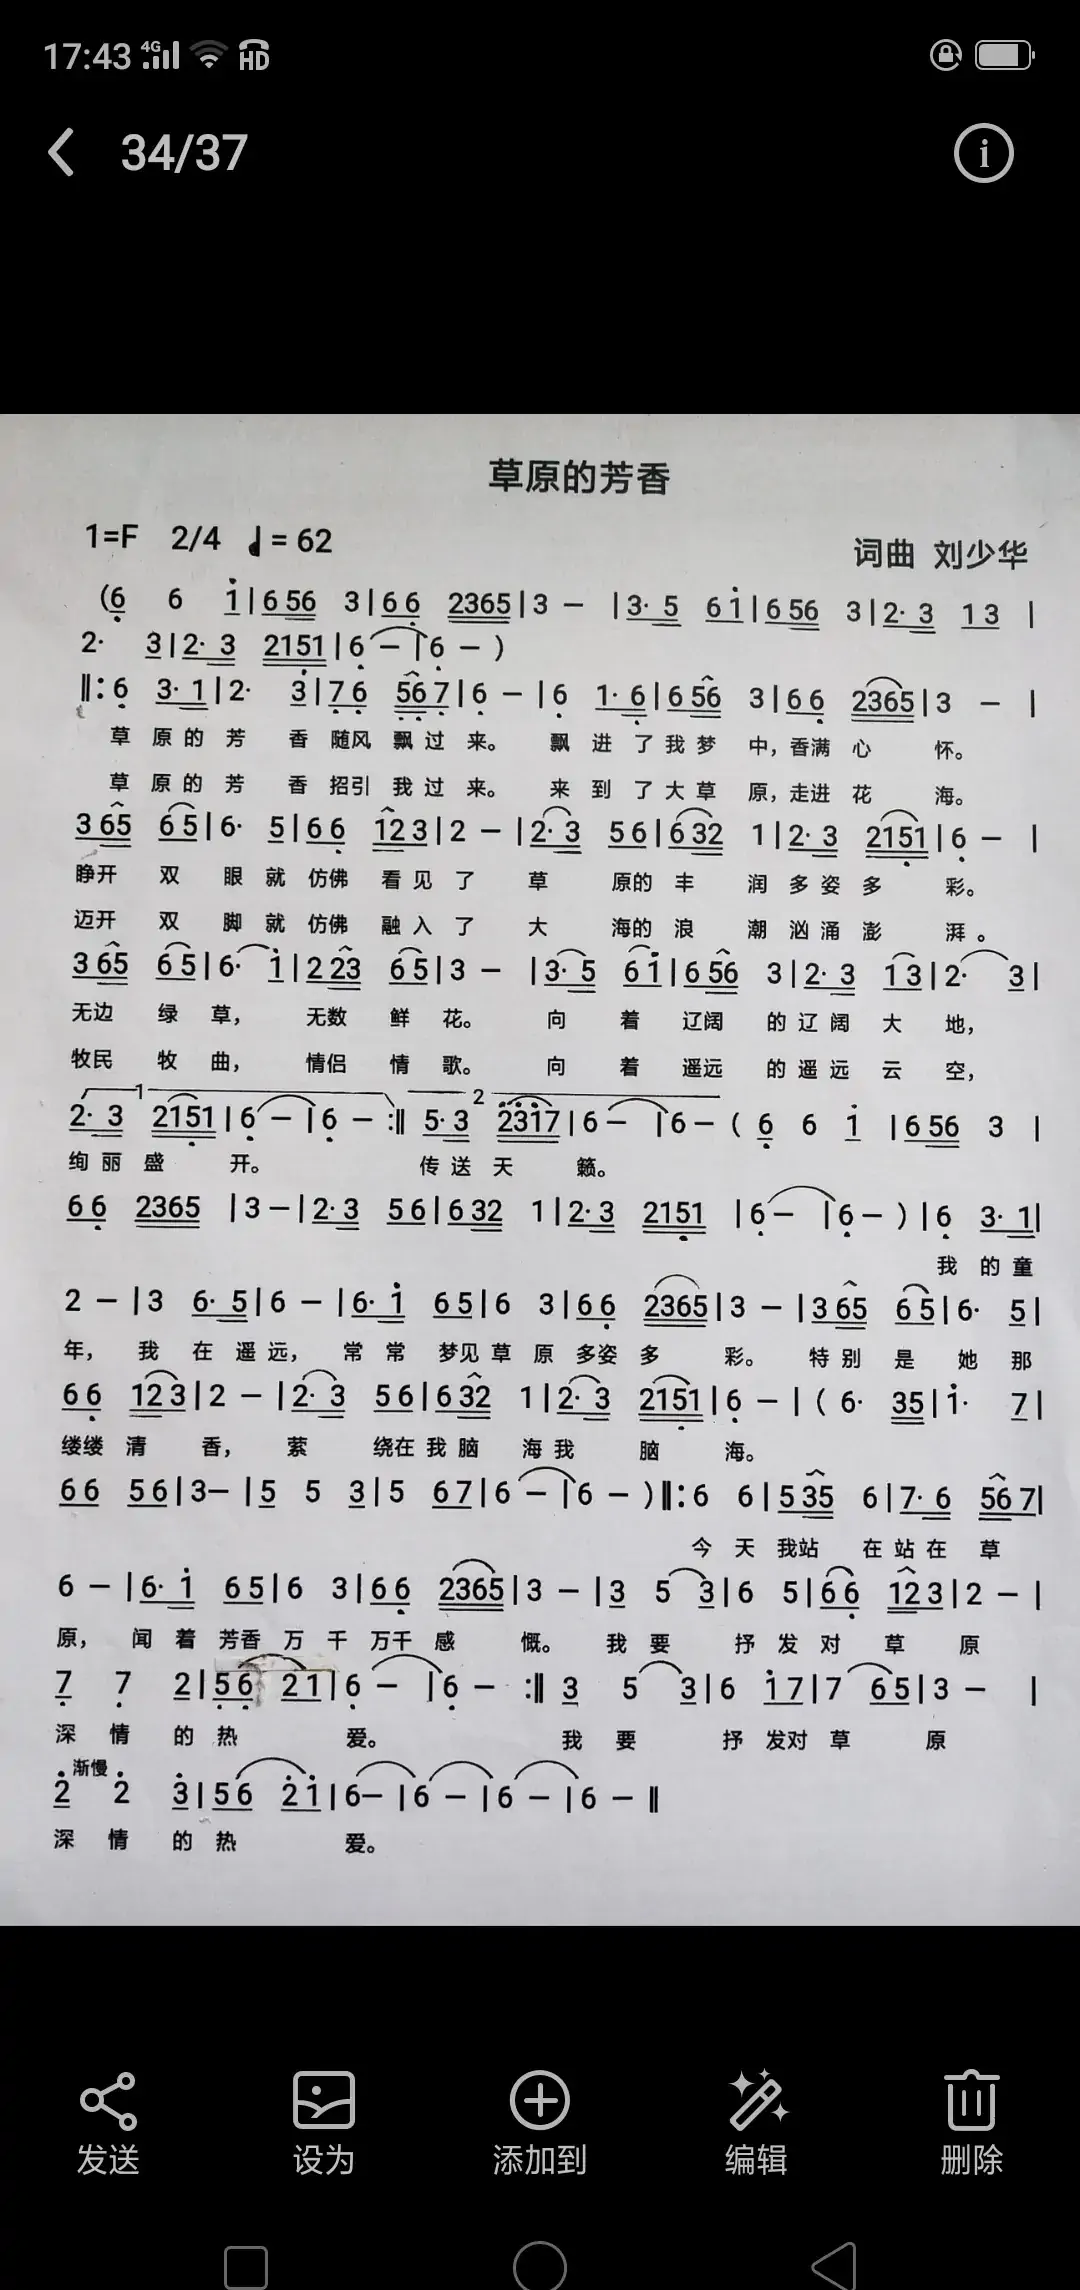 17:43 4G HD
34/37
草原的芳香
1=F 2/4 ♩= 62
词曲 刘少华
(6̣ 6 i|6 56 3|6 6̣ 2365|3 — |3· 5 6 i|6 56 3|2· 3 1 3 |
2· 3|2· 3 215̣1|6̣ — |6̣ — )
‖: 6̣ 3· 1|2· 3|7̣ 6̣ 5̣6̣ 7̣|6̣ — |6̣ 1· 6̣|6 56 3|6 6̣ 2365|3 — |
草 原 的 芳 香 随风 飘 过 来。 飘 进 了 我 梦 中，香满 心 怀。
草 原 的 芳 香 招引 我 过 来。 来 到 了 大 草 原，走进 花 海。
3 65 6 5|6· 5|6 6̣ 12 3|2 — |2· 3 5 6|6 32 1|2· 3 215̣1|6̣ — |
睁开 双 眼 就 仿佛 看 见 了 草 原的 丰 润 多 姿 多 彩。
迈开 双 脚 就 仿佛 融 入 了 大 海的 浪 潮 汹 涌 澎 湃 。
3 65 6 5|6· i|2 23 6 5|3 — |3· 5 6 i|6 56 3|2· 3 1 3|2· 3|
无边 绿 草， 无数 鲜 花。 向 着 辽阔 的 辽 阔 大 地，
牧民 牧 曲， 情侣 情 歌。 向 着 遥远 的 遥 远 云 空，
1 2
2· 3 215̣1|6̣ — |6̣ — :‖ 5· 3 2̇3̇1̇7|6 — |6 — ( 6̣ 6 i |6 56 3 |
绚 丽 盛 开。 传 送 天 籁。
6 6̣ 2365 |3 —|2· 3 5 6|6 32 1|2· 3 215̣1 |6̣ — |6̣ — ) |6̣ 3· 1|
我 的 童
2 — |3 6· 5|6 — |6· i 6 5|6 3|6 6̣ 2365|3 — |3 65 6 5|6· 5|
年， 我 在 遥 远， 常 常 梦见 草 原 多姿 多 彩。 特 别 是 她 那
6 6̣ 12 3|2 — |2· 3 5 6|6 32 1|2· 3 215̣1|6̣ — |( 6· 35|i· 7|
缕缕 清 香， 萦 绕在 我 脑 海 我 脑 海。
6 6 5 6|3— |5 5 3|5 6 7|6 — |6 — )‖: 6 6|5 35 6|7· 6 56 7|
今 天 我站 在 站 在 草
6 — |6· i 6 5|6 3|6 6̣ 2365|3 — |3 5 3|6 5|6 6̣ 12 3|2 — |
原， 闻 着 芳香 万 千 万千 感 慨。 我 要 抒 发 对 草 原
7̣ 7̣ 2|5̣ 6̣ 2 1|6̣ — |6̣ — :‖ 3 5 3|6 i 7|7 6 5|3 — |
深 情 的 热 爱。 我 要 抒 发对 草 原
渐慢
2̇ 2̇ 3̇|5 6 2̇ i|6— |6 — |6 — |6 — ‖
深 情 的 热 爱。
发送 设为 添加到 编辑 删除